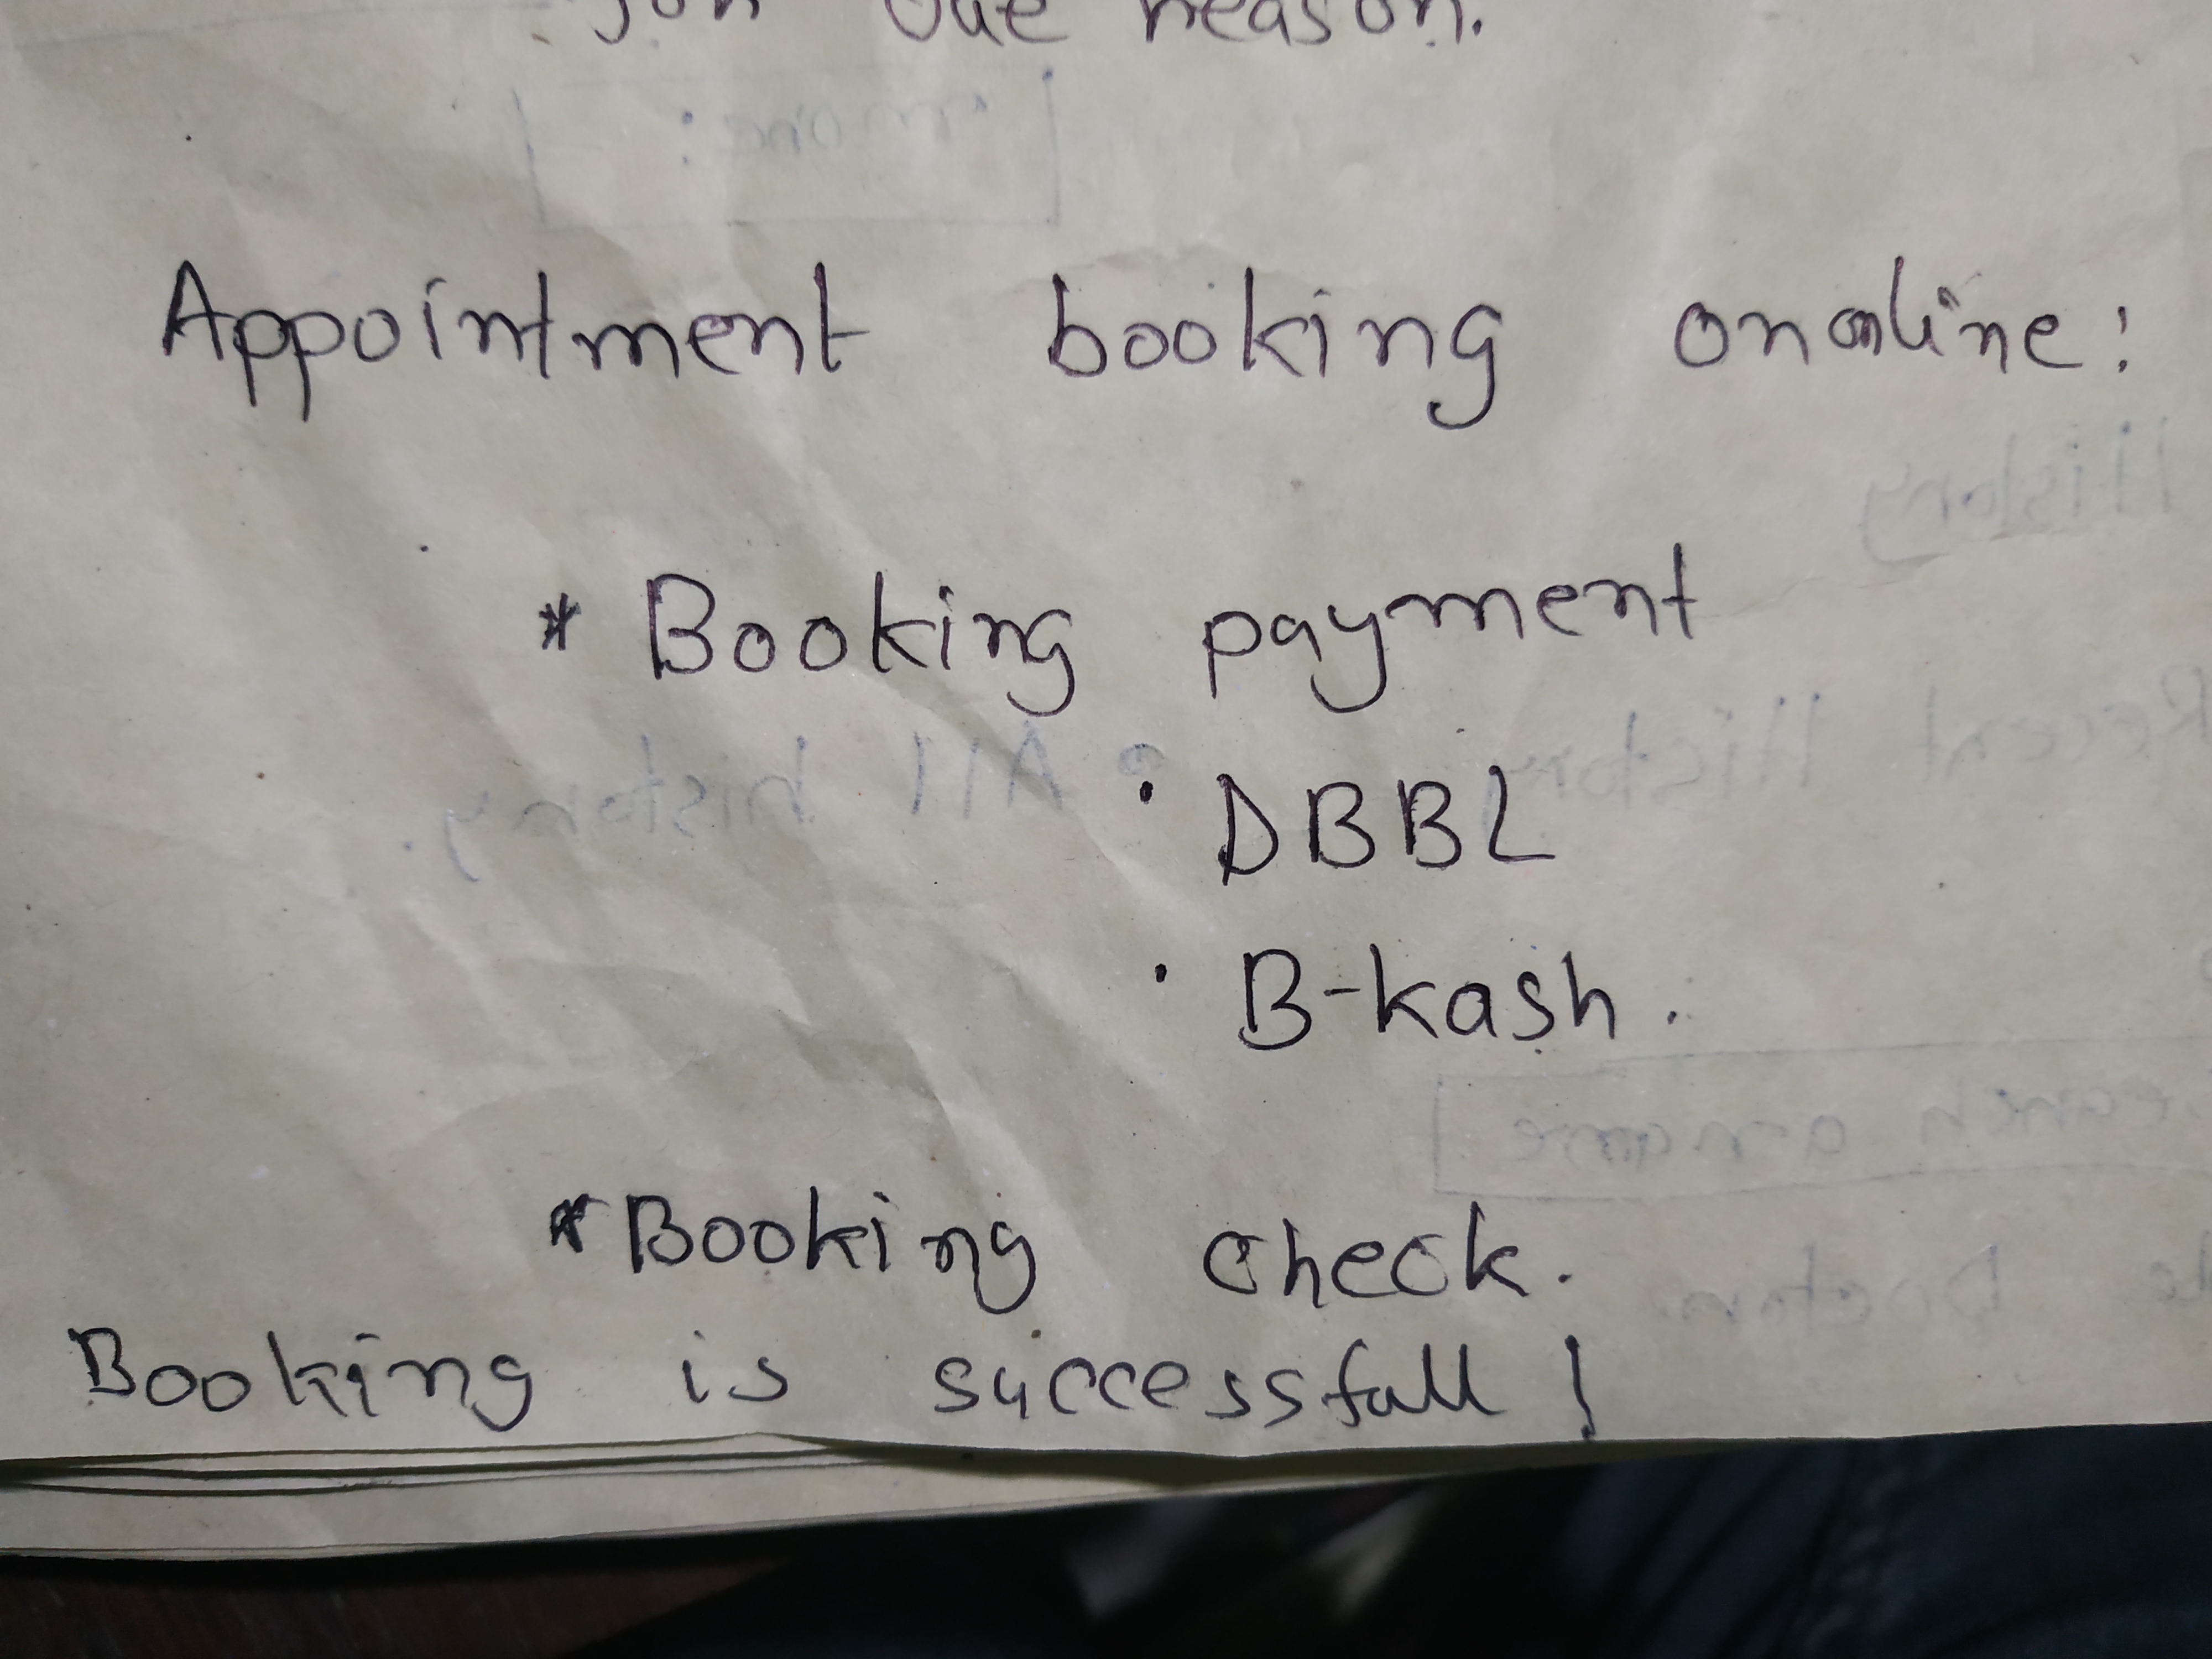 for due reason.
Appointment booking online:
* Booking payment
· DBBL
· B-kash.
* Booking check.
Booking is successfull!